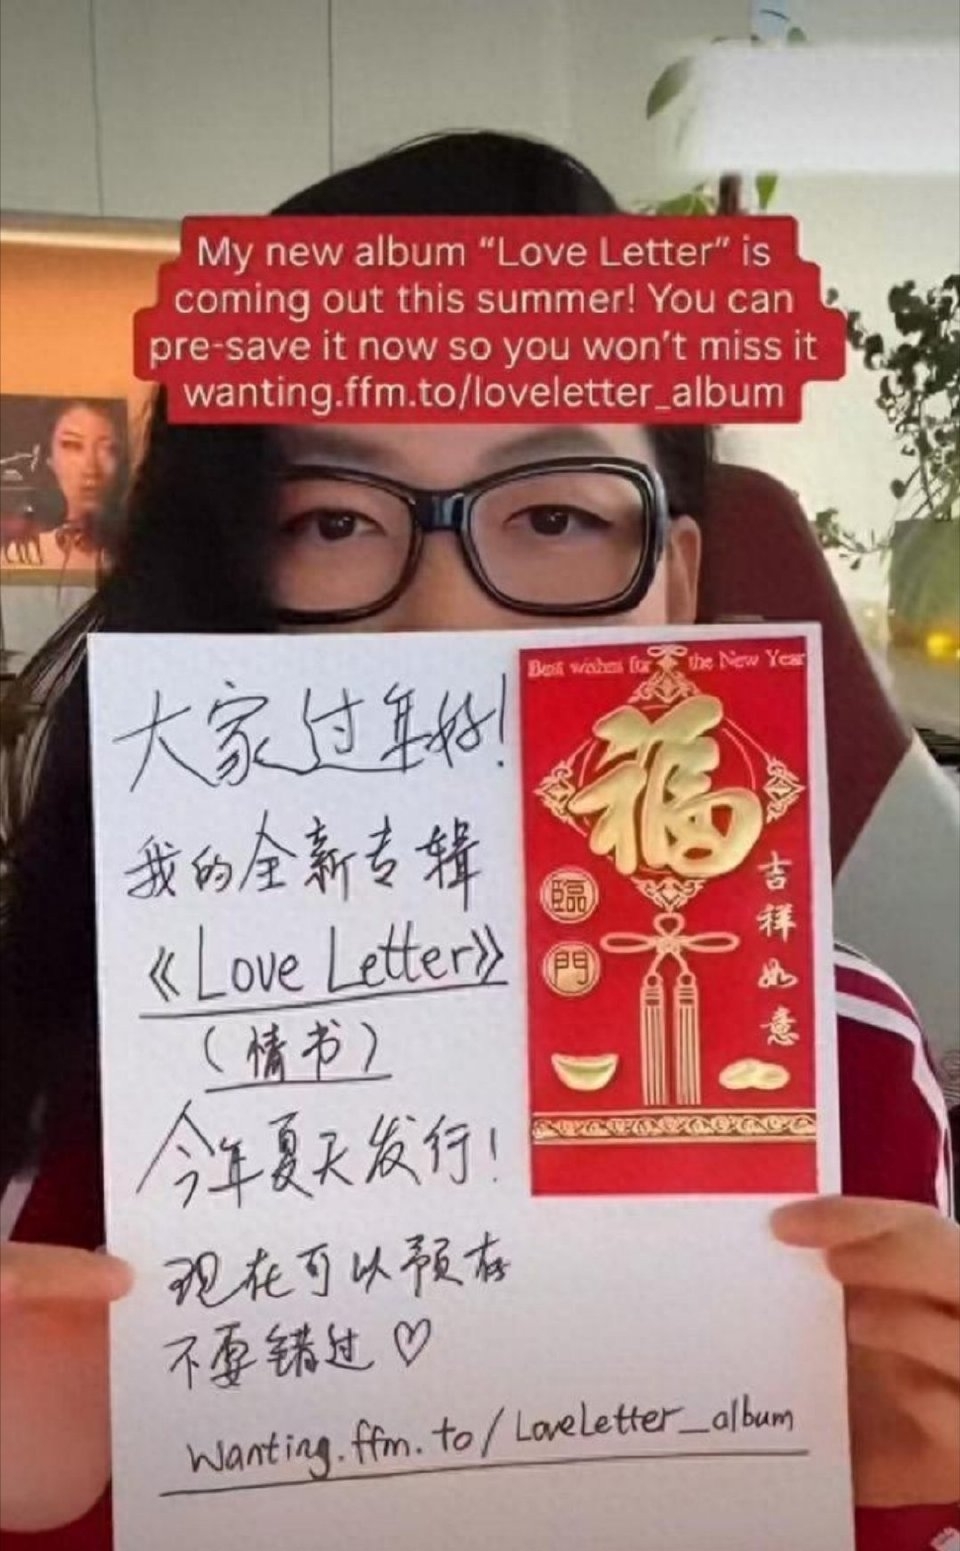 My new album “Love Letter” is
coming out this summer! You can
pre-save it now so you won’t miss it
wanting.ffm.to/loveletter_album
大家过年好!
我的全新专辑
《Love Letter》
(情书)
今年夏天发行!
现在可以预存
不要错过♡
wanting.ffm.to/LoveLetter_album
Best wishes for the New Year
福
臨
門
吉
祥
如
意